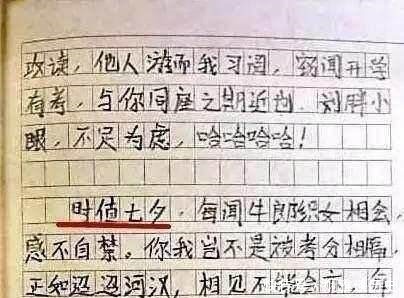 攻读，他人游而我习涸，窃闻开学
有考，与你同座之期近也。刘胖小
眼，不足为虑，哈哈哈哈！
时值七夕，每闻牛郎织女相会，
感不自禁。你我岂不是被考分相隔，
正如迢迢河汉，相见不能会意，每